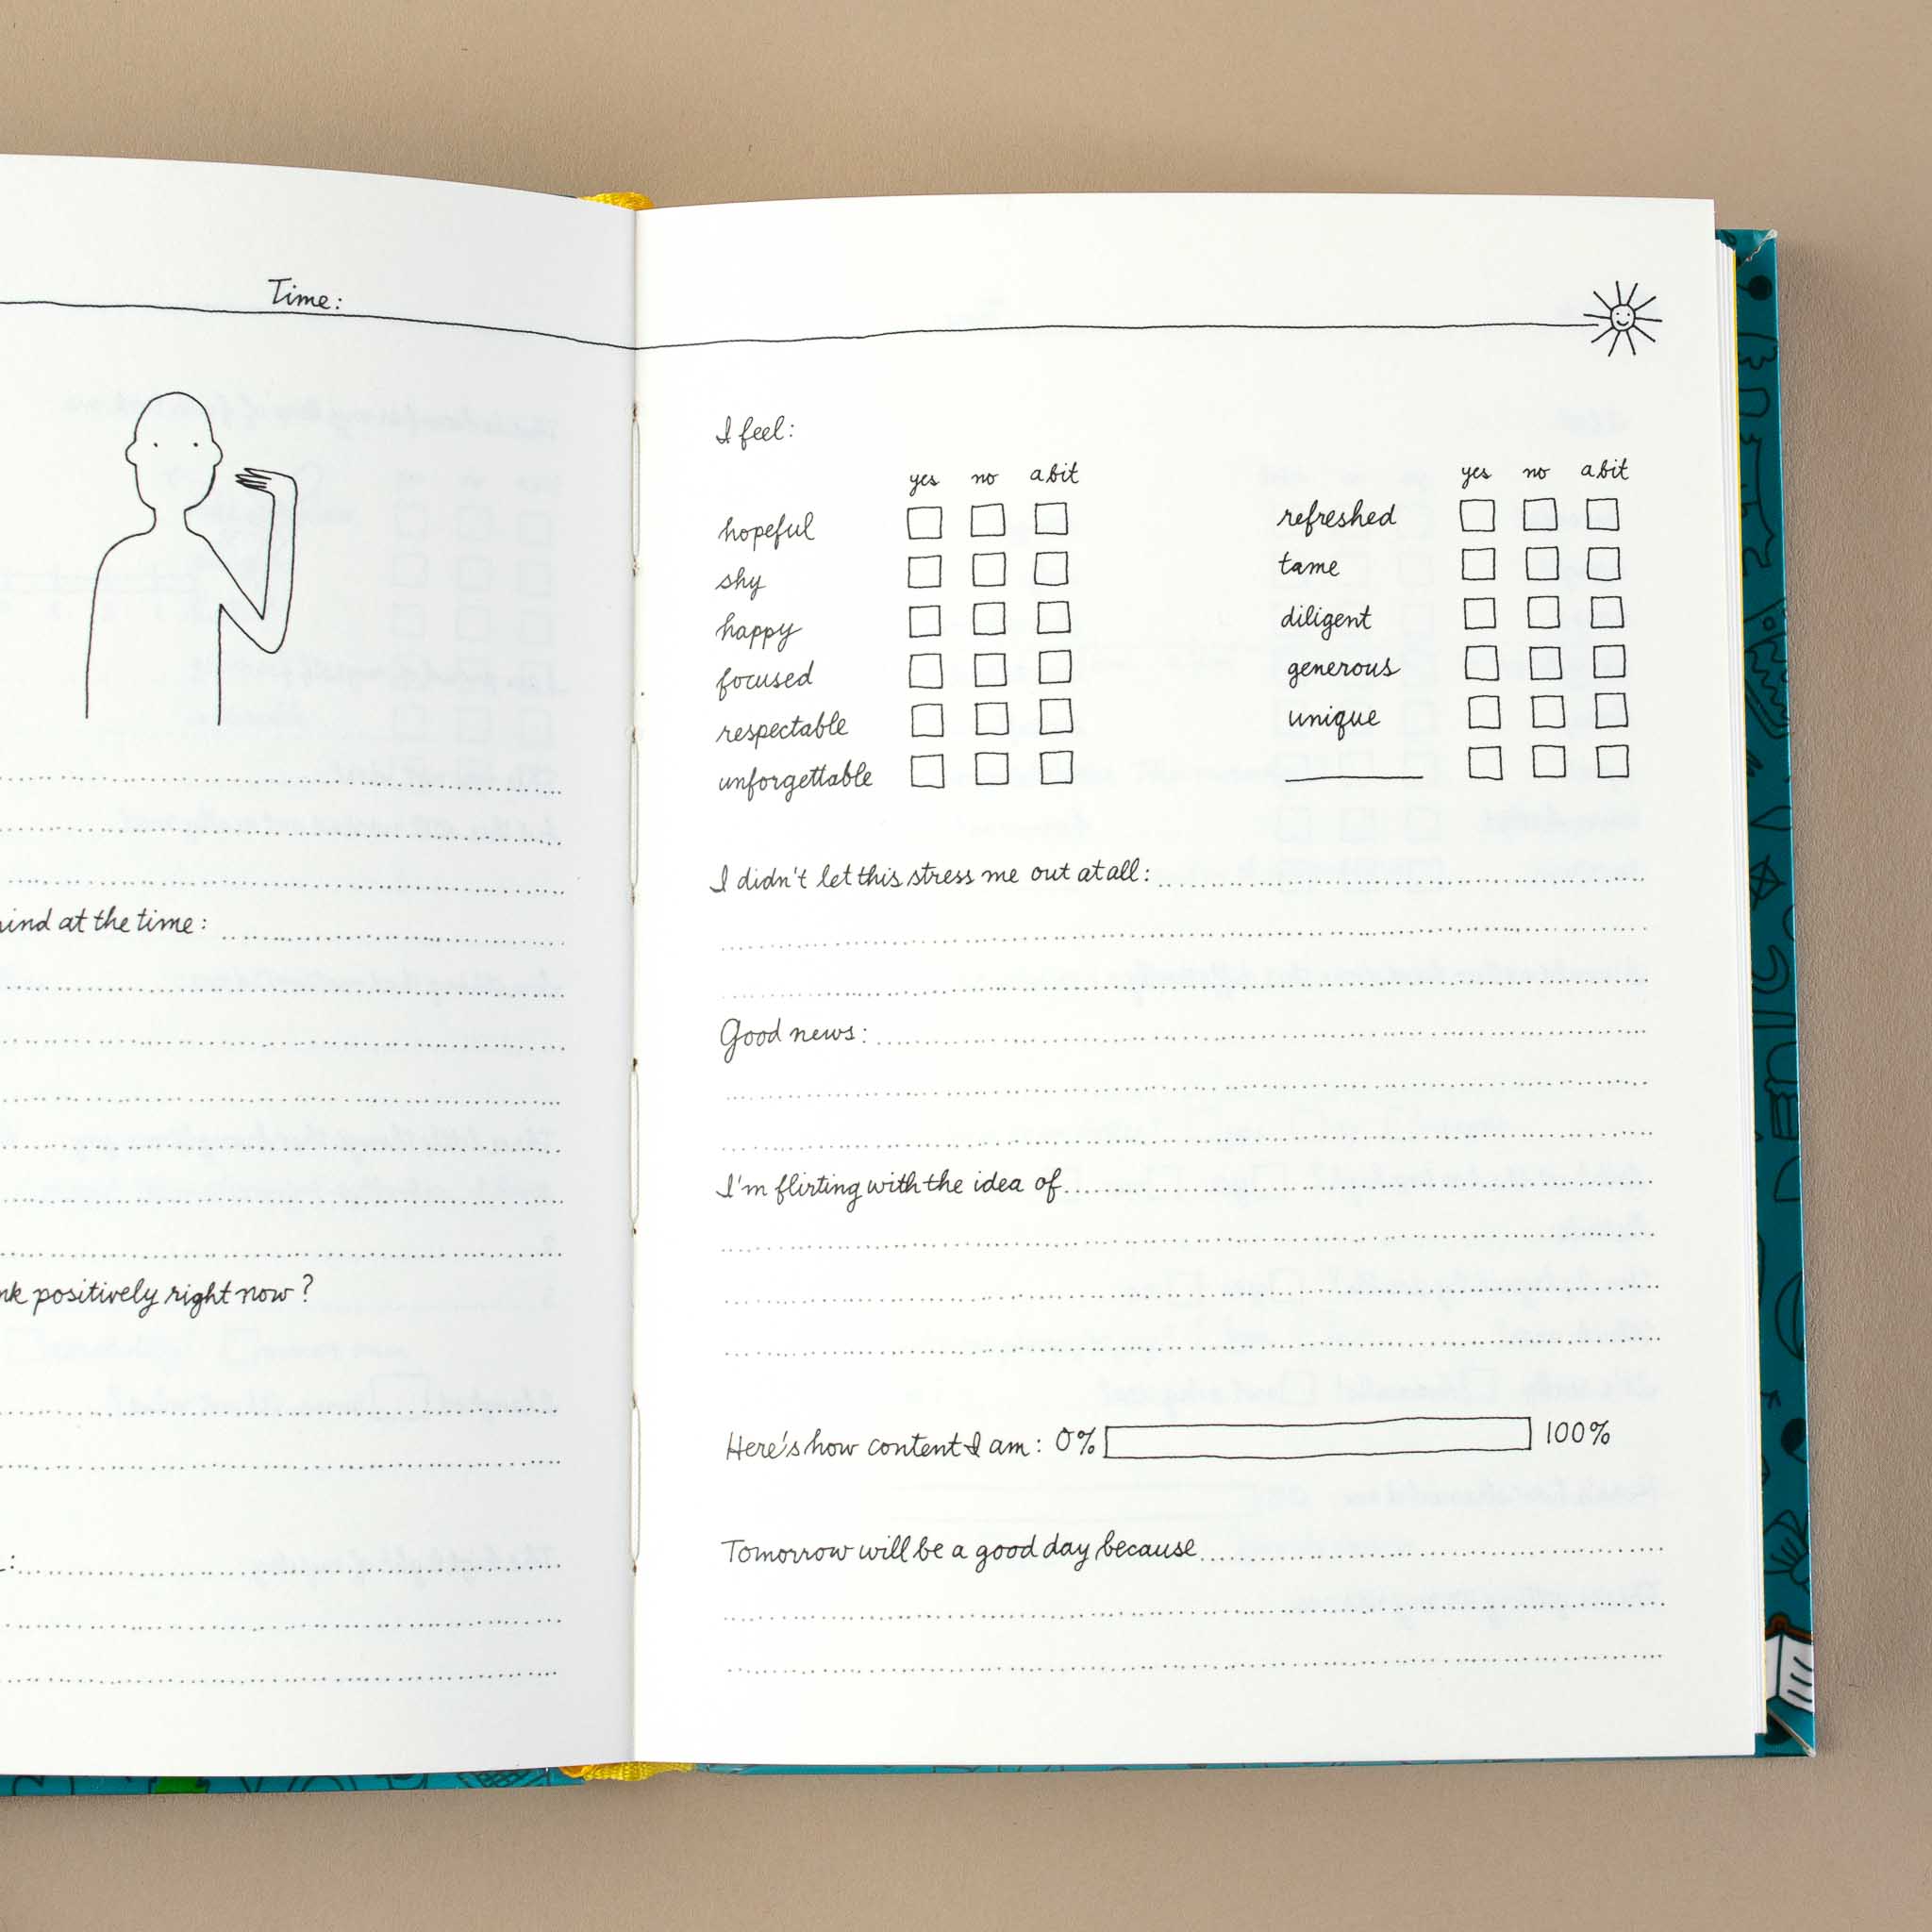 Time:
mind at the time:
positively right now?
I feel:
yes no a bit
hopeful
shy
happy
focused
respectable
unforgettable
yes no a bit
refreshed
tame
diligent
generous
unique
I didn't let this stress me out at all:
Good news:
I'm flirting with the idea of
Here's how content I am: 0% 100%
Tomorrow will be a good day because